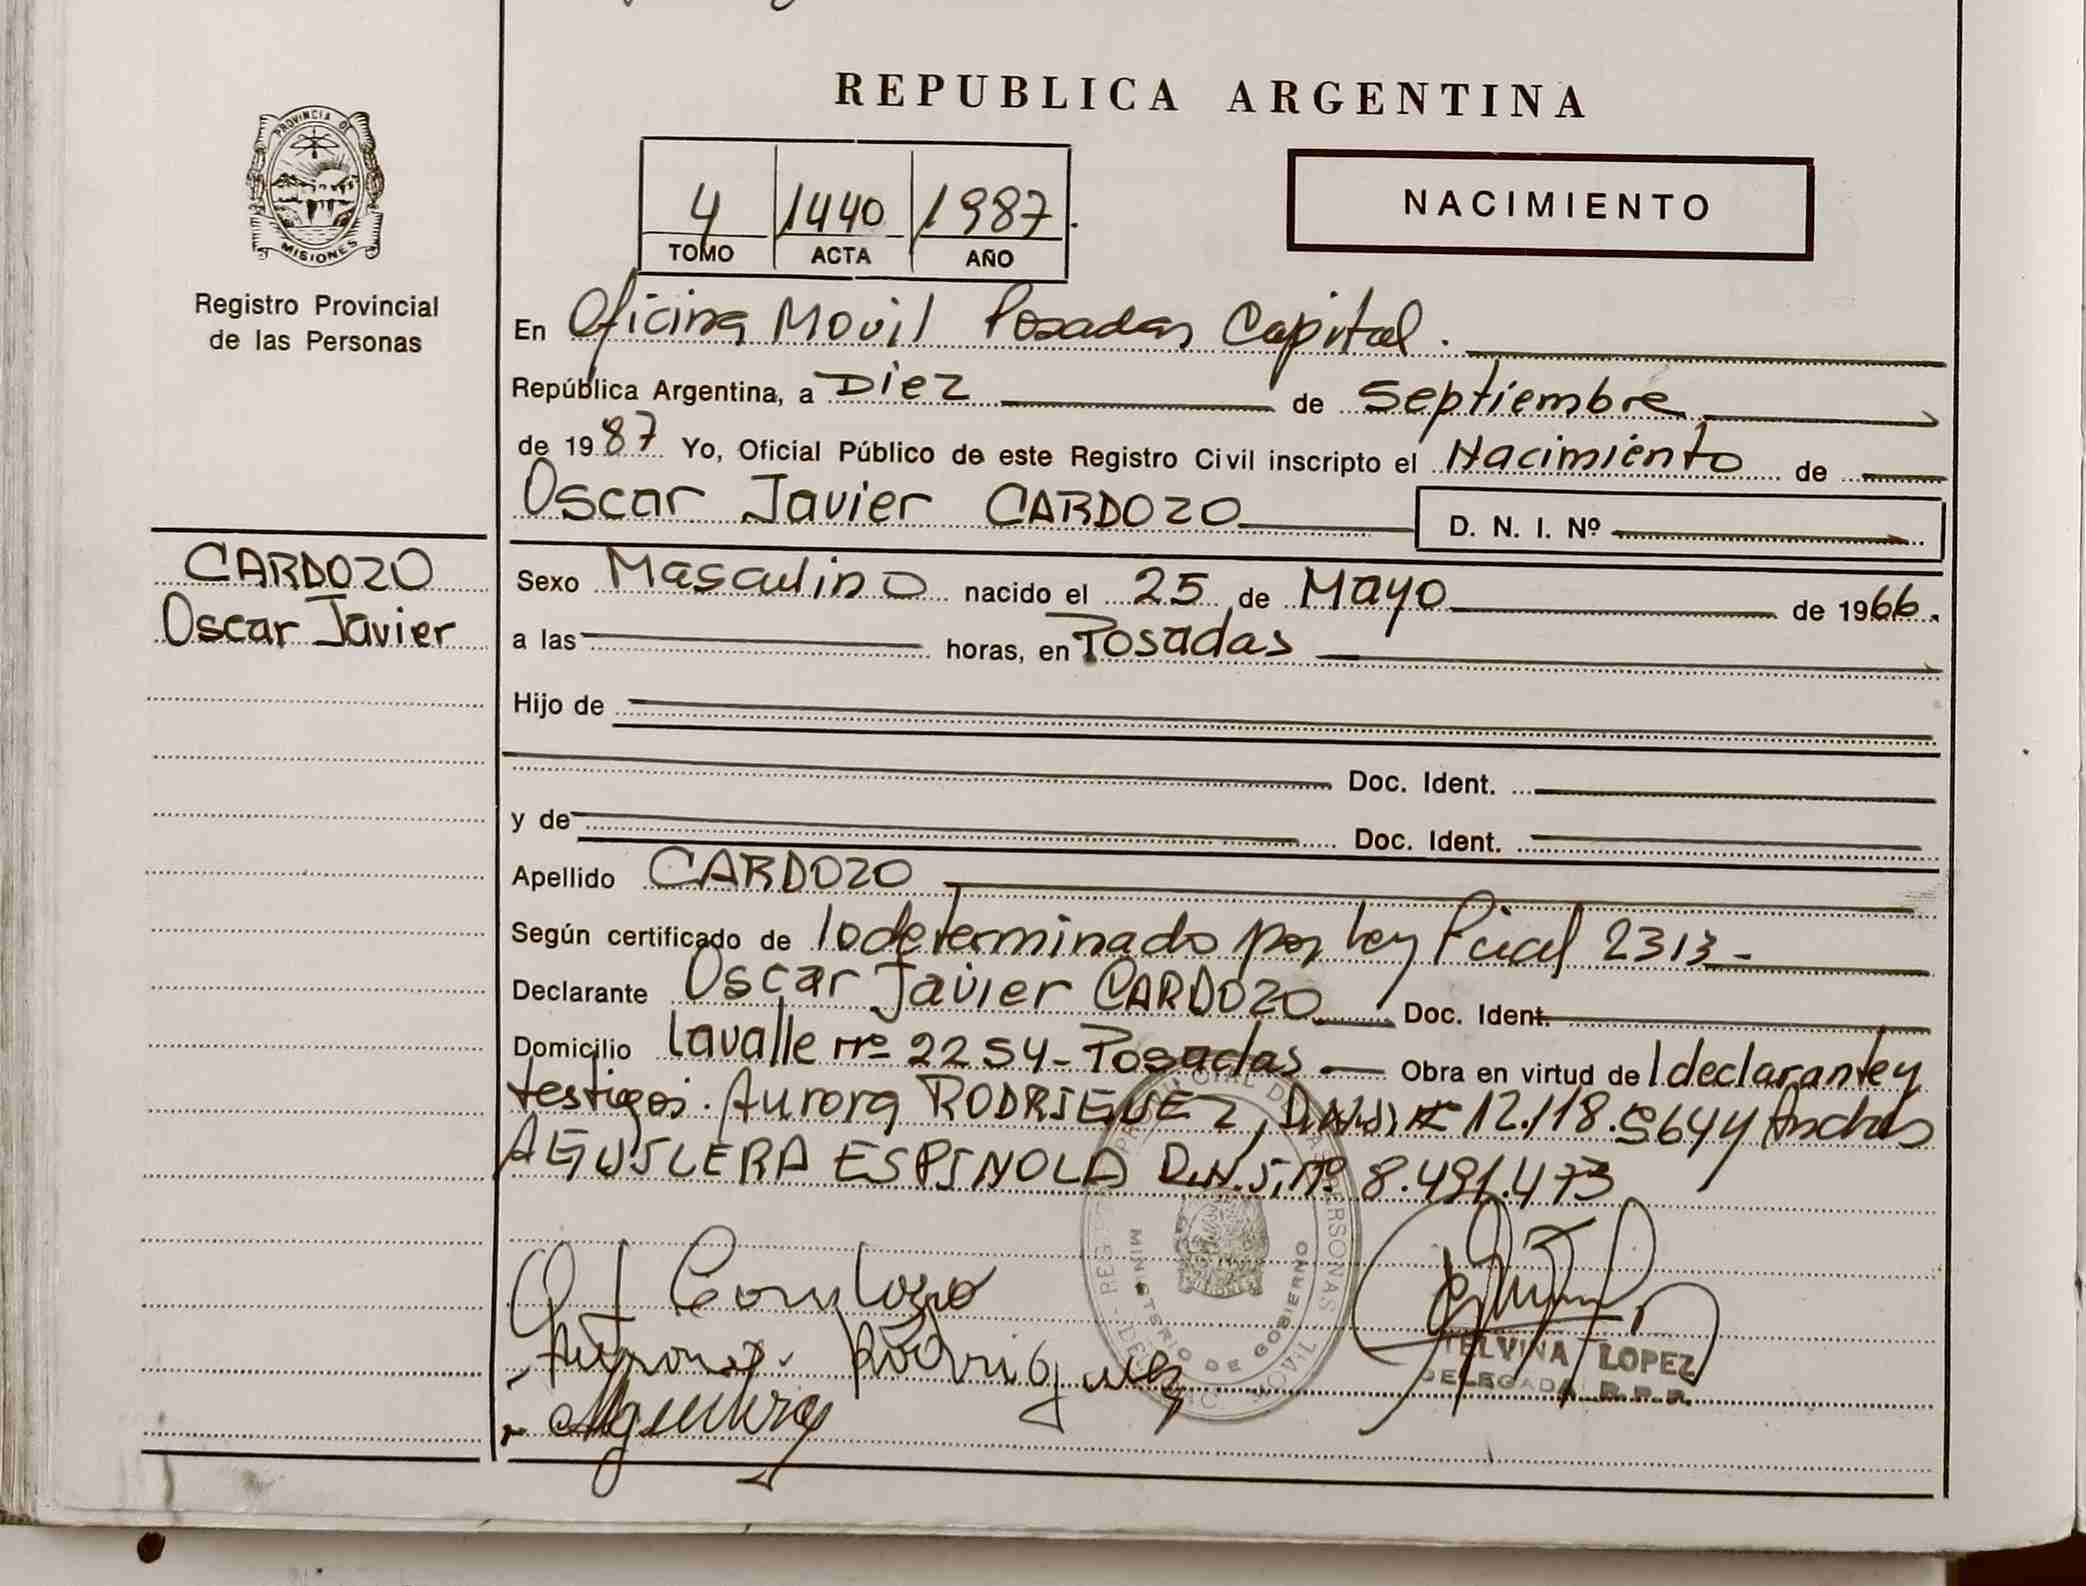 REPUBLICA ARGENTINA
PROVINCIA DE
MISIONES
Registro Provincial
de las Personas
4 1440 1987
TOMO ACTA AÑO
NACIMIENTO
En Oficina Movil Posadas Capital.
República Argentina, a Diez de Septiembre
de 1987 Yo, Oficial Público de este Registro Civil inscripto el Nacimiento de
Oscar Javier CARDOZO D. N. I. Nº
CARDOZO
Oscar Javier
Sexo Masculino nacido el 25 de Mayo de 1966.
a las horas, en Posadas
Hijo de
Doc. Ident.
y de Doc. Ident.
Apellido CARDOZO
Según certificado de lo determinado por Ley 2313-
Declarante Oscar Javier CARDOZO Doc. Ident.
Domicilio Lavalle nº 2254-Posadas Obra en virtud de l declarante y
testigos. Aurora RODRIGUEZ, D.N.I. 12.118.564 y
AGUILERA ESPINOLA D.N.I. nº 8.491.473
O J Cardozo
Rodriguez
MINISTERIO DE GOBIERNO
TELVINA LOPEZ
DELEGADA R.P.P.